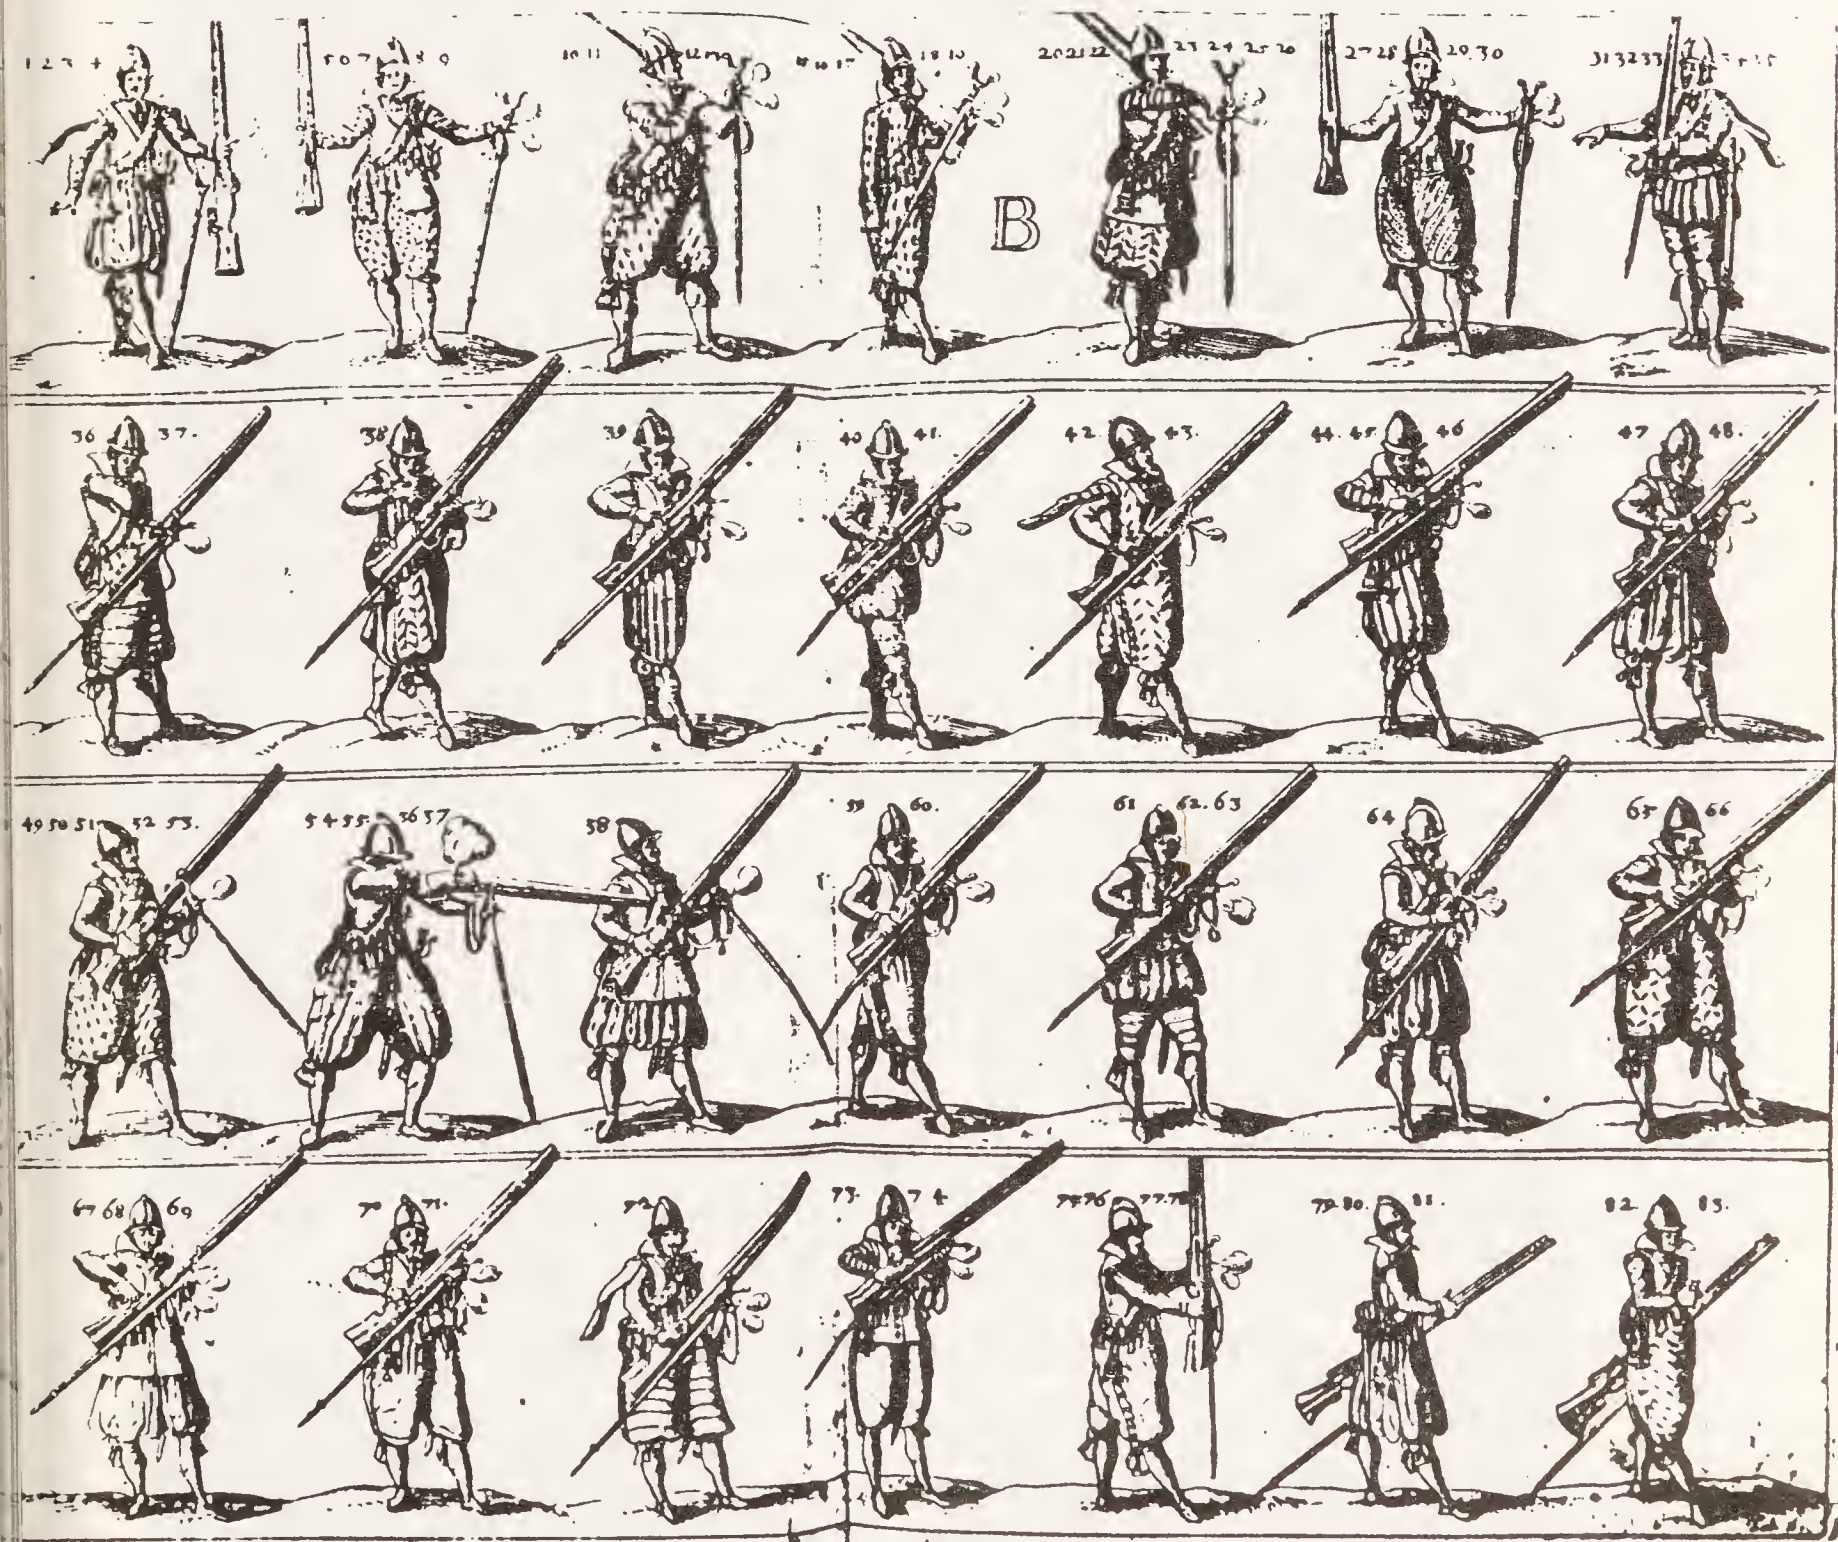 1 2 3 4 5 6 7 8 9 10 11 18 19 20 21 22 23 24 25 26 27 28 29 30 31 32 33
B
36 37. 38 39 40 41. 42. 43. 44. 45. 46 47 48.
49 50 51 52 53. 54 55. 56 57 58 59 60. 61 62. 63 64 65 66
67 68 69 70 71. 72 73. 74 77. 78 79. 80. 81. 82 83.